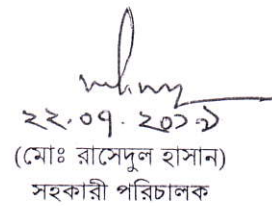 ২২.০৭.২০১৯
(মোঃ রাসেদুল হাসান)
সহকারী পরিচালক